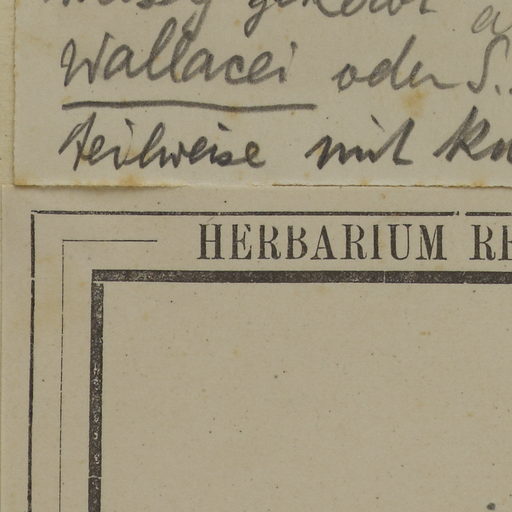 gekerbt
Wallacei oder S.
teilweise mit
HERBARIUM